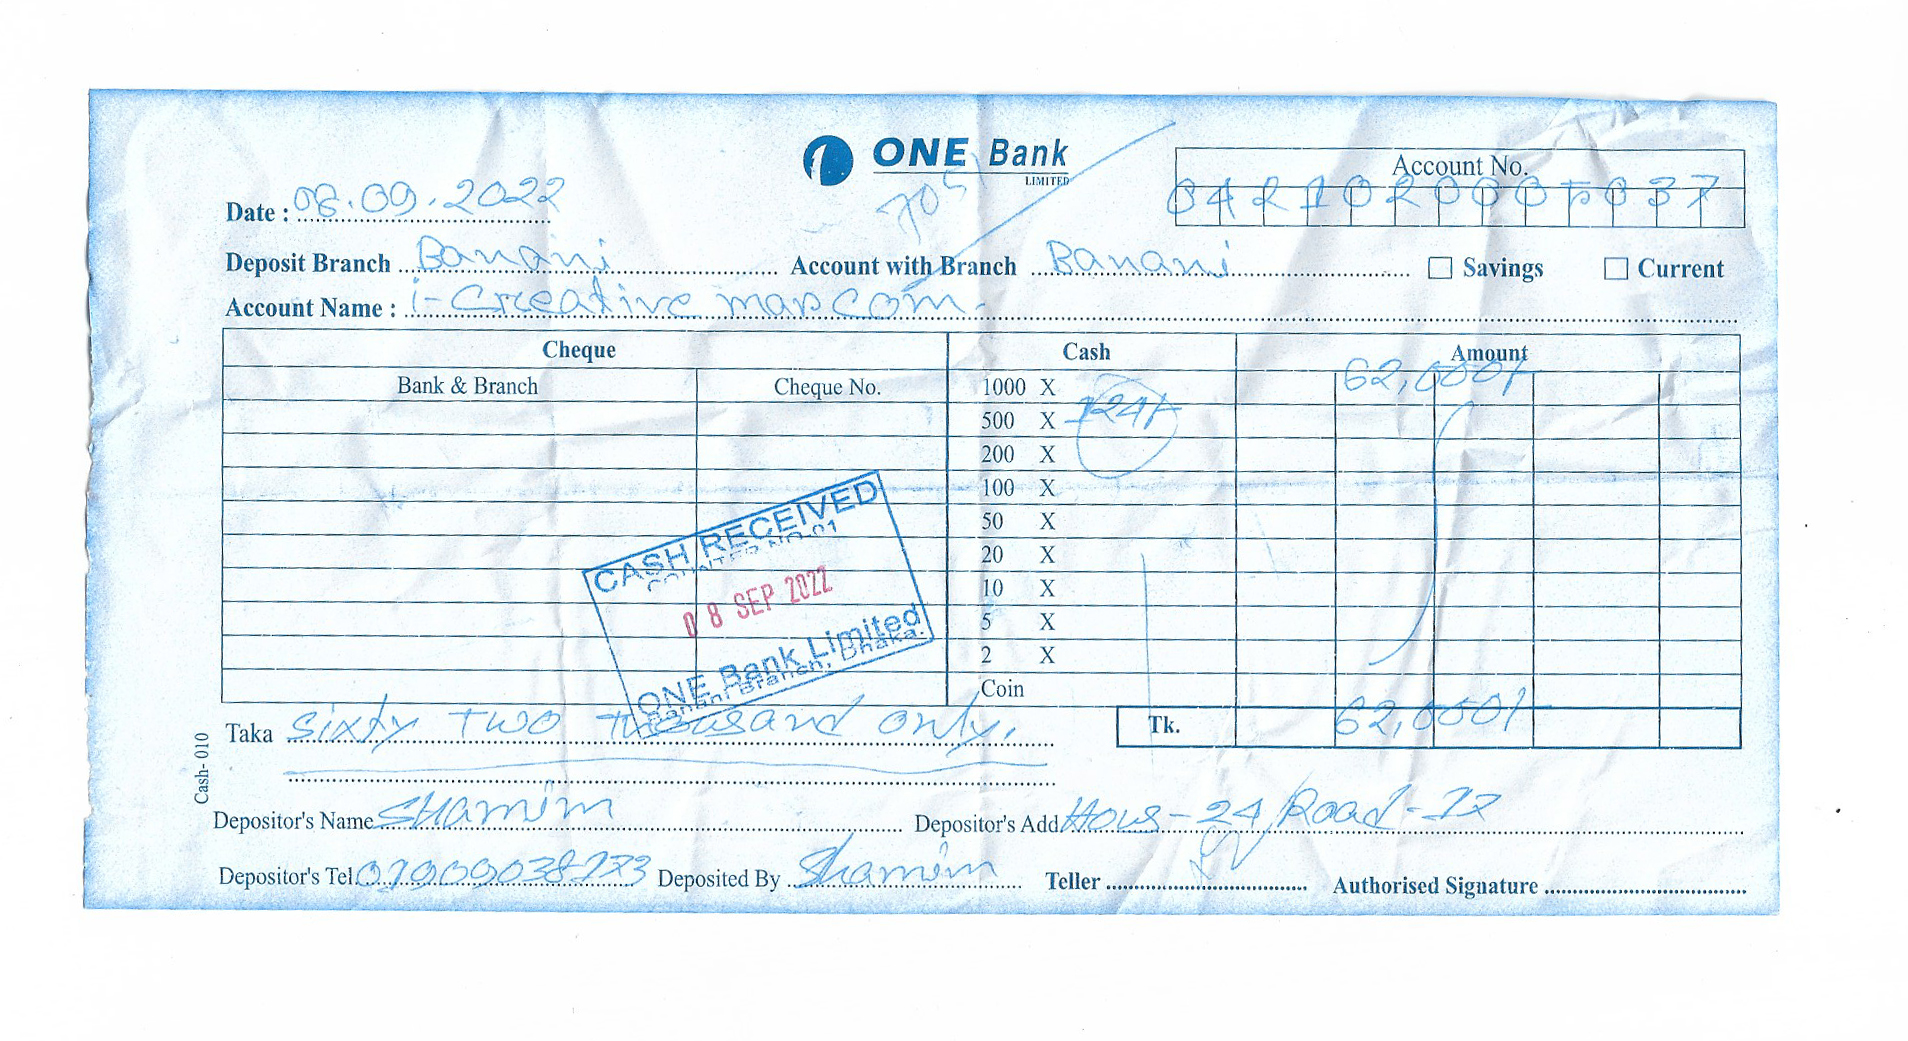 ONE Bank
LIMITED
705
Account No.
0421020005037
Date : 08.09.2022
Deposit Branch Banani Account with Branch Banani Savings Current
Account Name : i-Creative marcom.
Cheque Cash Amount
Bank & Branch Cheque No. 1000 X 62,000/-
500 X 124/-
200 X
100 X
50 X
20 X
10 X
5 X
2 X
Coin
CASH RECEIVED
COUNTER NO-01
08 SEP 2022
ONE Bank Limited
Banani Branch, Dhaka.
Taka Sixty Two thousand only. Tk. 62,000/-
Cash- 010
Depositor's Name Shamim Depositor's Add Hous-24 Road-17
Depositor's Tel 01909038173 Deposited By Shamim Teller Authorised Signature